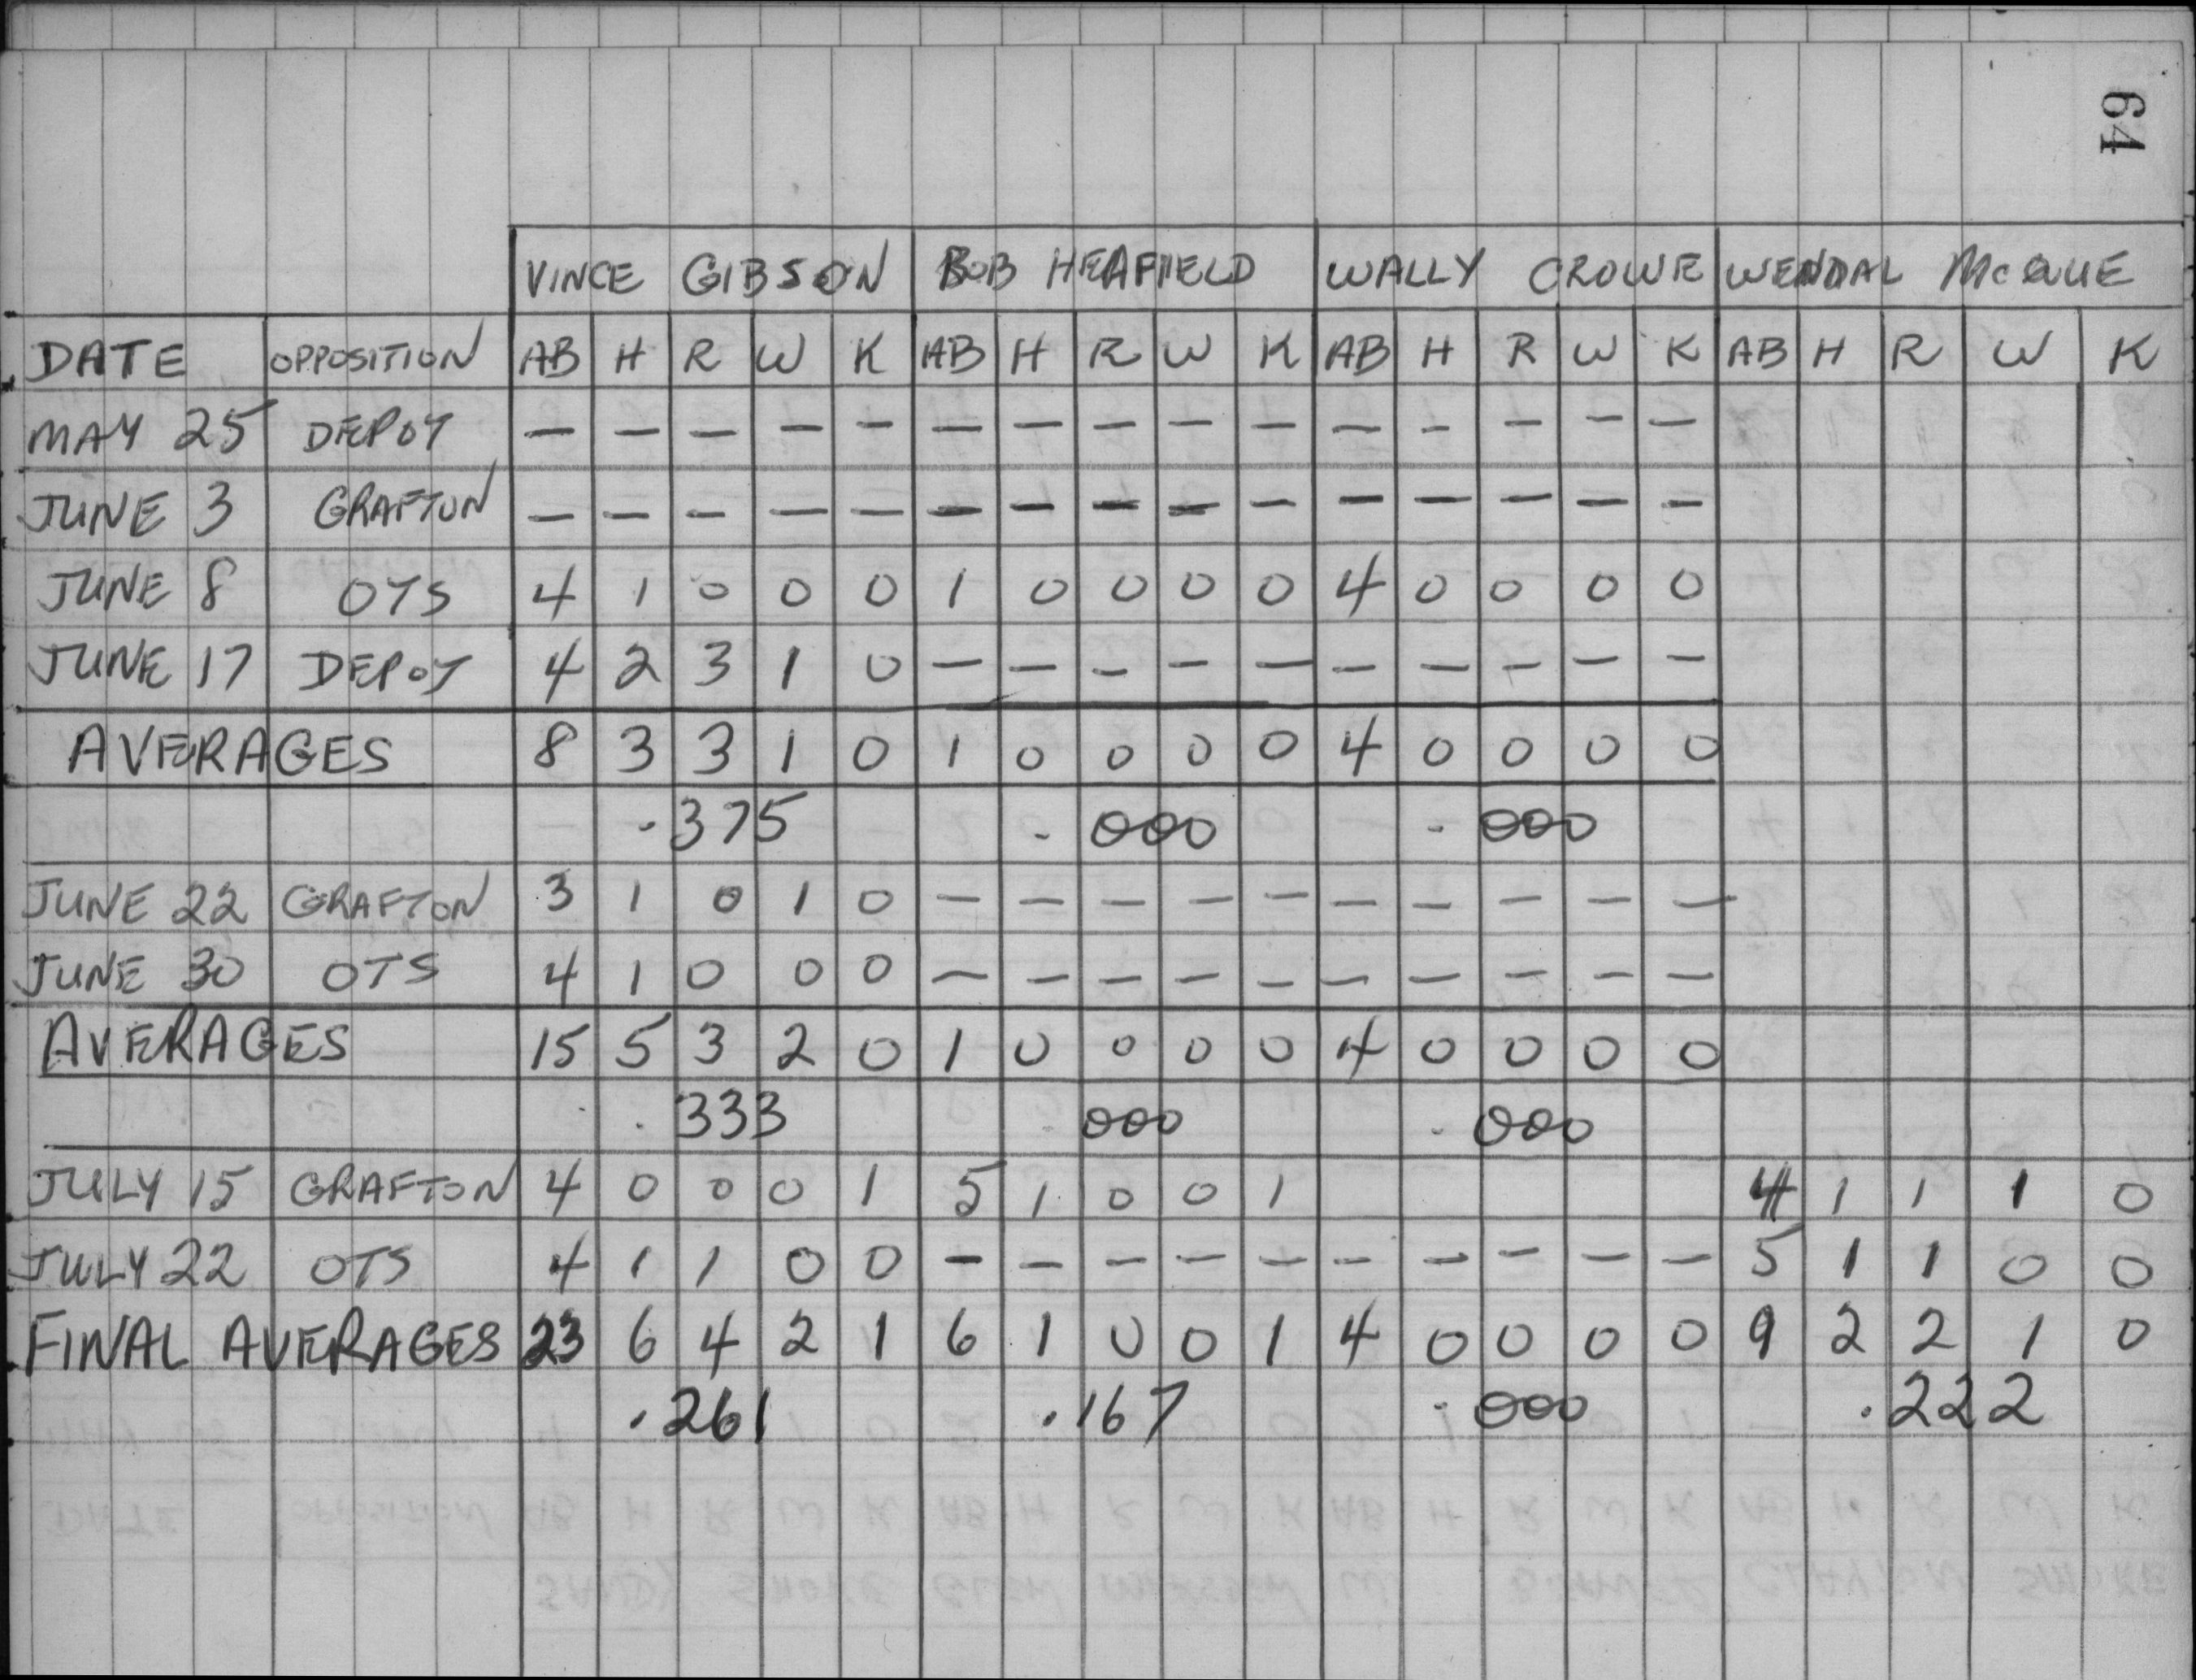 64
VINCE GIBSON BOB HEAFIELD WALLY CROWE WENDAL McQUE
DATE OPPOSITION AB H R W K AB H R W K AB H R W K AB H R W K
MAY 25 DEPOT — — — — — — — — — — — — — — —
JUNE 3 GRAFTON — — — — — — — — — — — — — — —
JUNE 8 OTS 4 1 0 0 0 1 0 0 0 0 4 0 0 0 0
JUNE 17 DEPOT 4 2 3 1 0 — — — — — — — — — —
AVERAGES 8 3 3 1 0 1 0 0 0 0 4 0 0 0 0
.375 .000 .000
JUNE 22 GRAFTON 3 1 0 1 0 — — — — — — — — — —
JUNE 30 OTS 4 1 0 0 0 — — — — — — — — — —
AVERAGES 15 5 3 2 0 1 0 0 0 0 4 0 0 0 0
.333 .000 .000
JULY 15 GRAFTON 4 0 0 0 1 5 1 0 0 1 4 1 1 1 0
JULY 22 OTS 4 1 1 0 0 — — — — — — — — — — 5 1 1 0 0
FINAL AVERAGES 23 6 4 2 1 6 1 0 0 1 4 0 0 0 0 9 2 2 1 0
.261 .167 .000 .222